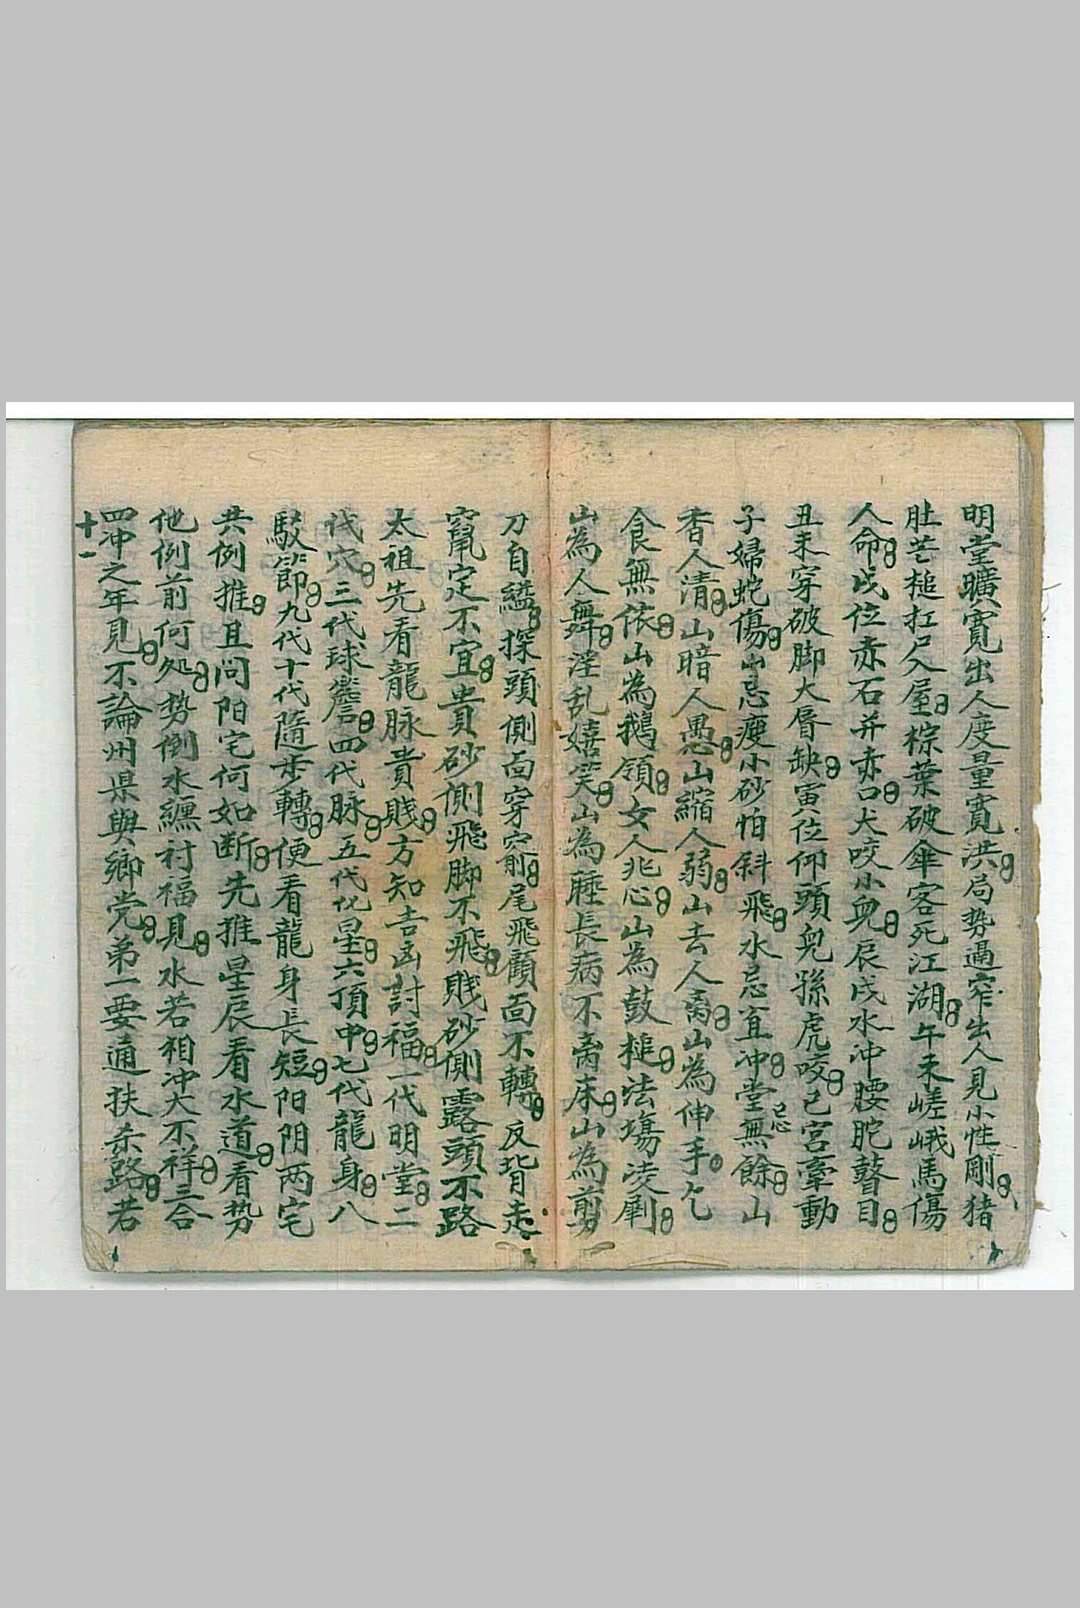 明堂曠寬出人度量寬洪局势逼窄出人見小性剛猪
肚芒槌扛尸入屋棕葉破傘客死江湖午未嵯峨馬傷
人命戌位赤石并赤口犬咬小兒辰戌水冲腰駝瞽目
丑未穿破脚大唇缺寅位仰頭兒孫虎咬巳宫牽動
子婦蛇傷山忌瘦小砂怕斜飛水忌直冲堂忌無餘山
香人清山暗人愚山縮人弱山去人离山為伸手乞
食無依山為鹅領女人兆心山為鼓槌法塲凌剮
山為人舞淫乱嬉笑山為腫長病不离床山為剪
刀自縊探頭側面穿窬尾飛顧面不轉反背走
竄定不宜貴砂側飛脚不飛賎砂側露頭不路
太祖先看龍脉貴賎方知吉凶討福一代明堂二
代穴三代球簷四代脉五代化星六頂中七代龍身八
馭節九代十代隨步轉便看龍身長短阳阴两宅
共例推且问阳宅何如断先推星辰看水道看势
他例前何処势倒水纏衬福見水若相冲大不祥三合
四冲之年見不論州県與鄉党弟一要通扶杀路若
十一